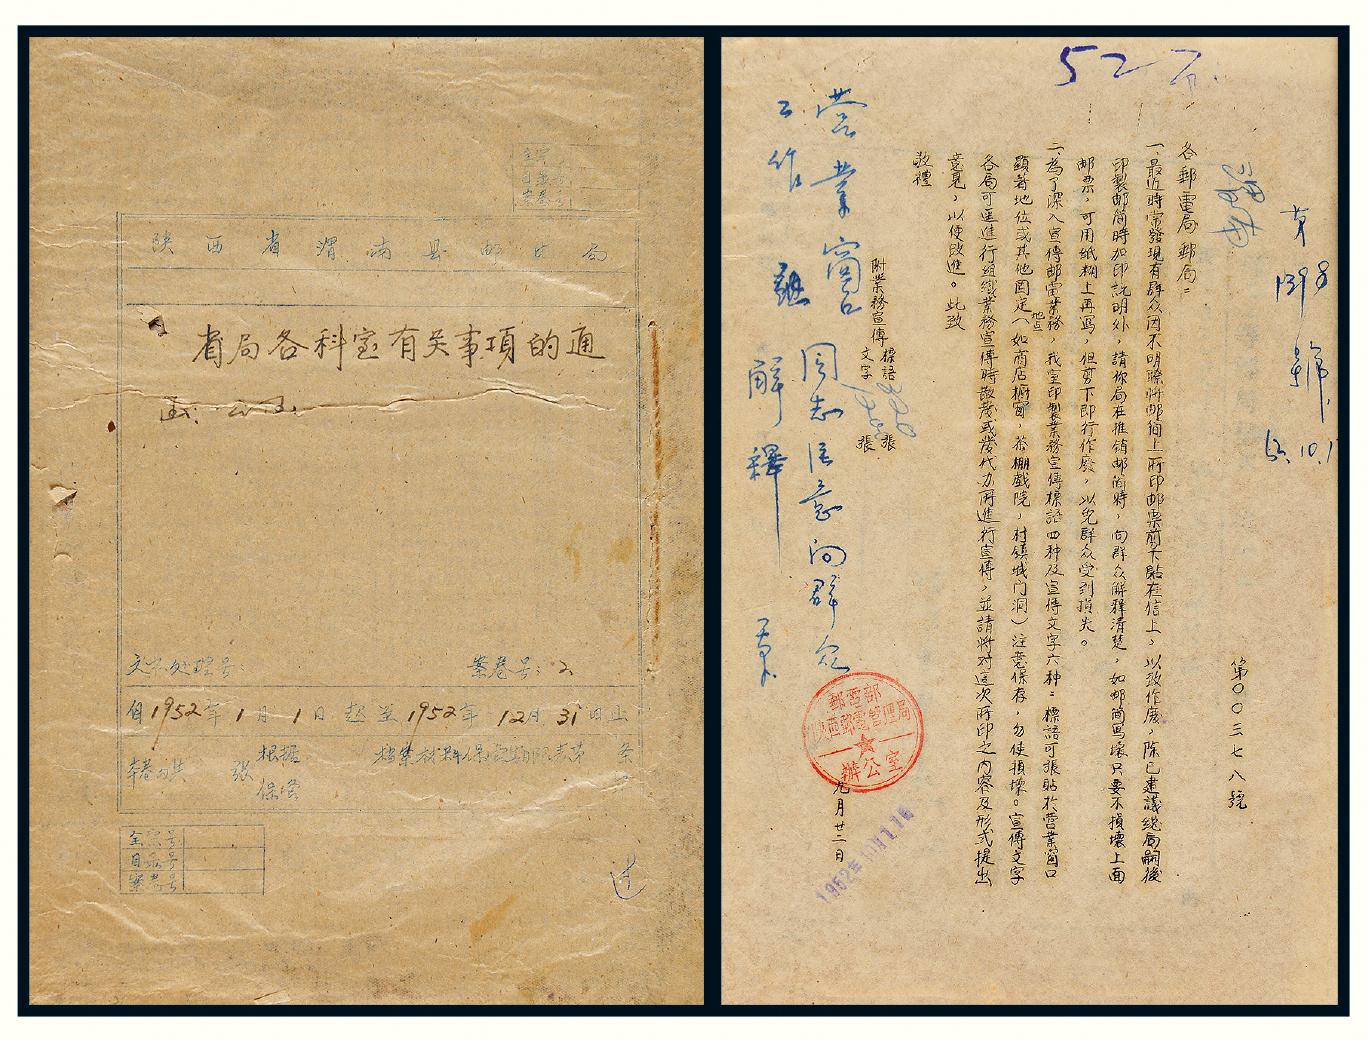 全宗号
目录号
案卷号
陕西省渭南县邮电局
省局各科室有关事項的通
函.公函.
文书处理号：
案卷号：2
自1952年1月1日起至1952年12月31日止
本卷内共 张
根据
保管
档案材料保管期限表第 条
全宗号
目录号
案卷号
52
第1398號
52.10.1
第00三七八號
各郵電局郵局：
一、最近時常發現有群众因不明瞭將邮简上所印邮票剪下貼在信上，以致作廢，除已建議总局嗣後
印製邮简時加印説明外，請你局在推銷邮简時，向群众解释清楚，如邮简寫壞只要不損壞上面
邮票，可用紙糊上再寫，但剪下即行作廢，以免群众受到損失。
二、為了深入宣傳邮電業務，我室印製業務宣傳標語四种及宣傳文字六种：標語可張貼於营業窗口
顕著地位或其他固定地点（如商店橱窗，茶棚戲院，村鎮城门洞）注意保存，勿使損壞。宣傳文字
各局可在進行組織業務宣傳時散發或發代办所進行宣傳，並請將对这次所印之内容及形式提出
意見，以便改進。此致
敬禮
附業務宣傳標語320張
文字 張
郵電部
陝西郵電管理局
辦公室
九月廿二日
1952年
营業窗口同志注意向群众
工作 解釋